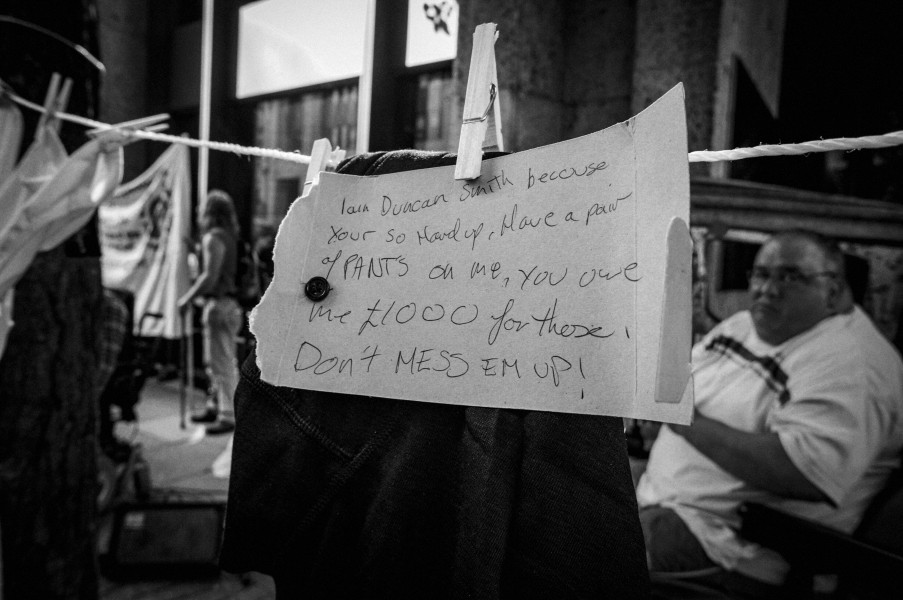 Iain Duncan Smith because
Your so Hard up, Have a pair
of PANTS on me, YOU owe
me £1000 for these.
Don't MESS EM UP!